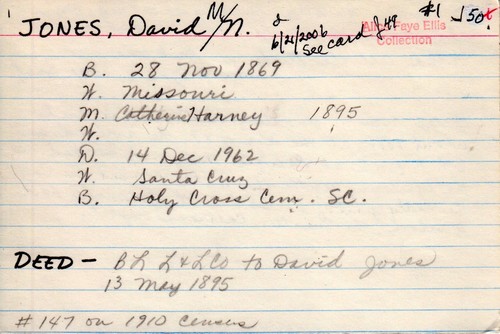 JONES, David M/N.
& 6/21/2006
See card J49
#1
J50
Alice Faye Ellis
Collection
B. 28 Nov 1869
W. Missouri
M. Catherine Harney 1895
W.
D. 14 Dec 1962
W. Santa Cruz
B. Holy Cross Cem. SC.
DEED — BL L & L Co to David Jones
13 May 1895
#147 on 1910 Census